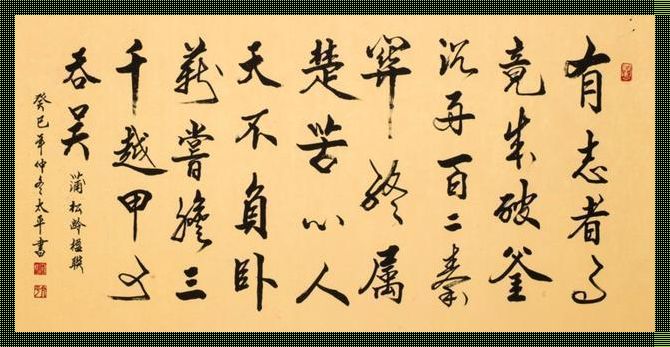 有志者事
竟成破釜
沉舟百二秦
関終属
楚苦心人
天不負卧
薪嘗膽三
千越甲可
吞吴
蒲松龄楹联
癸巳年仲冬太平書